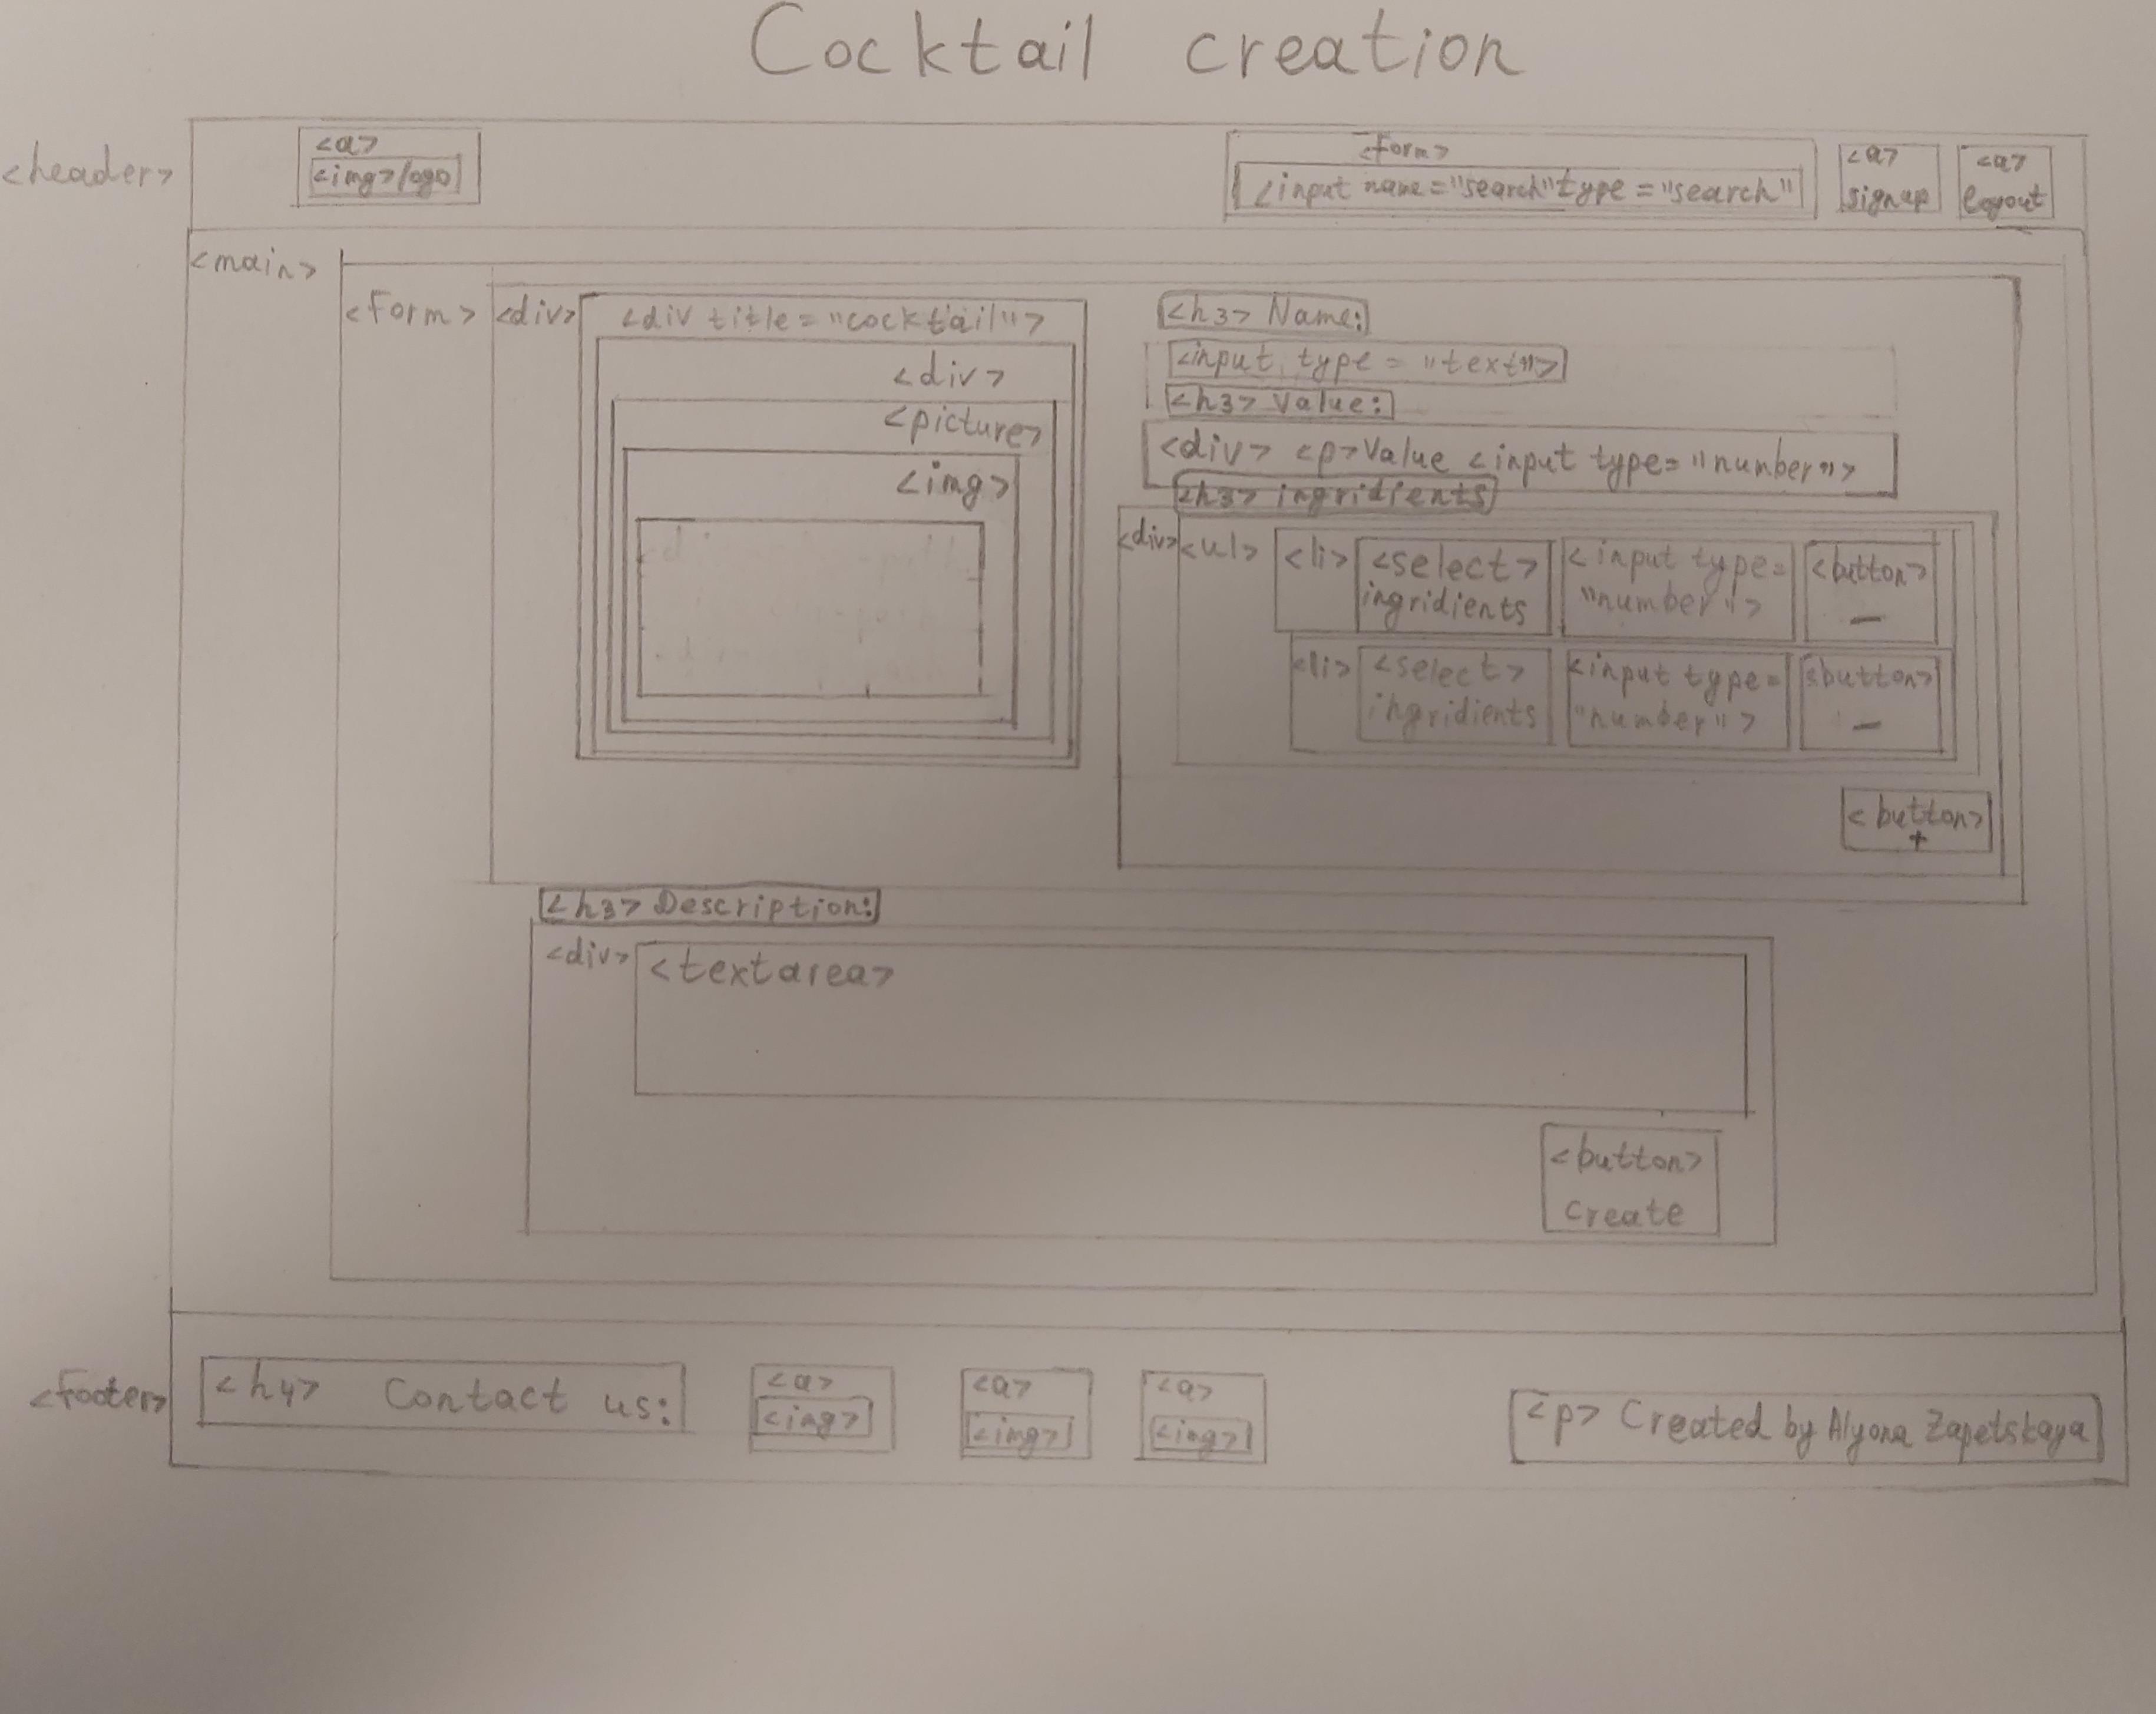 Cocktail creation
<header>
<a>
<img>logo
<form>
<input name="search" type="search"
<a>
signup
<a>
logout
<main>
<form>
<div>
<div title="cocktail">
<div>
<picture>
<img>
<h3> Name:
<input type="text">
<h3> Value:
<div> <p>Value <input type="number">
<h3> ingridients
<div>
<ul>
<li>
<select>
ingridients
<input type=
"number">
<button>
-
<li>
<select>
ingridients
<input type=
"number">
<button>
-
<button>
+
<h3> Description:
<div>
<textarea>
<button>
create
<footer>
<h4> Contact us:
<a>
<img>
<a>
<img>
<a>
<img>
<p> Created by Alyona Zapetskaya